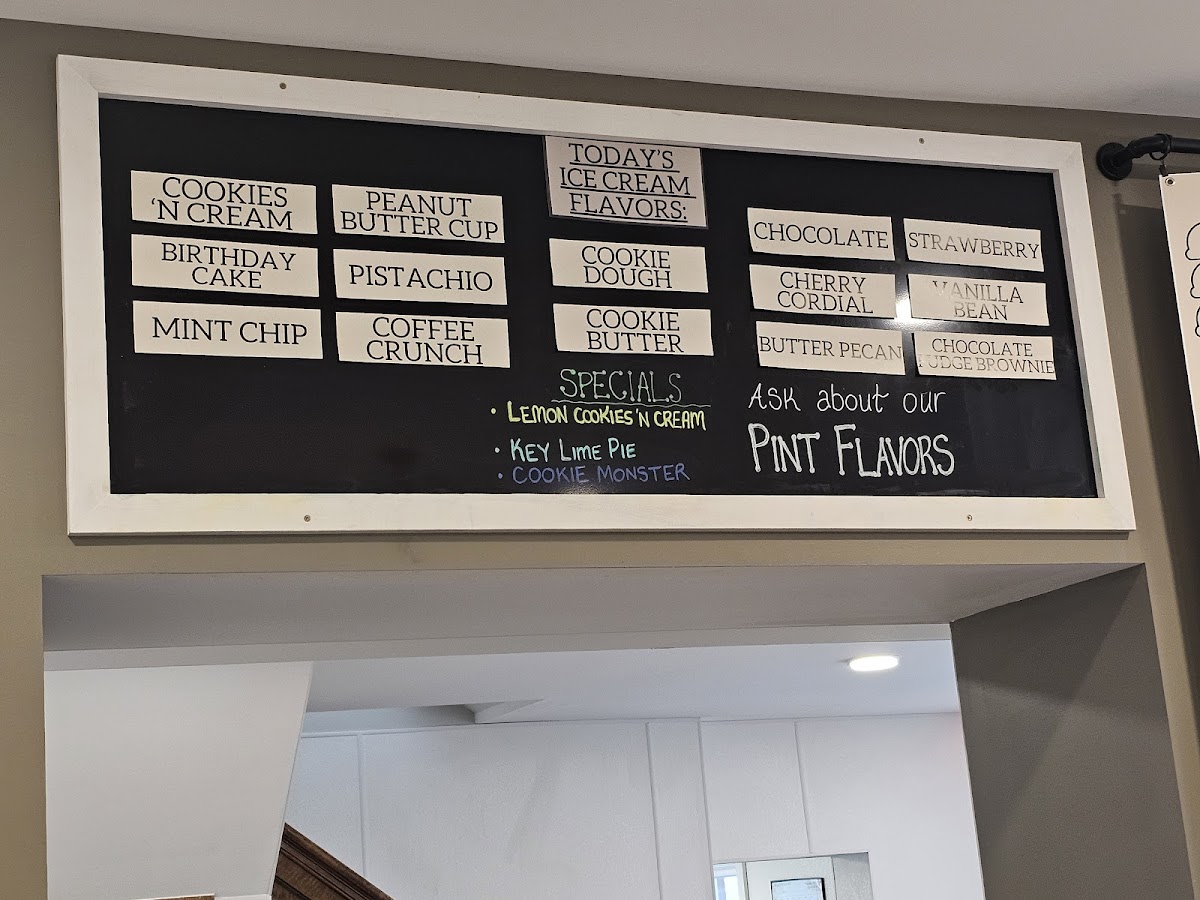 TODAY'S
ICE CREAM
FLAVORS:
COOKIES
'N CREAM
PEANUT
BUTTER CUP
BIRTHDAY
CAKE
PISTACHIO
MINT CHIP
COFFEE
CRUNCH
COOKIE
DOUGH
COOKIE
BUTTER
CHOCOLATE
STRAWBERRY
CHERRY
CORDIAL
VANILLA
BEAN
BUTTER PECAN
CHOCOLATE
FUDGE BROWNIE
SPECIALS
• LEMON COOKIES 'N CREAM
• KEY LIME PIE
• COOKIE MONSTER
Ask about our
PINT FLAVORS